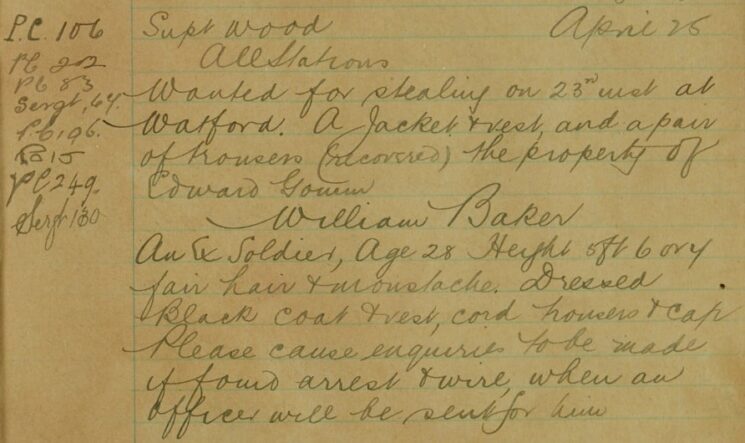 P.C. 106 Supt Wood April 25
P.C. 202 All Stations
P.C. 83
Sergt, 64. Wanted for stealing on 23rd inst at
P.C. 196. Watford. A Jacket & vest, and a pair
P.C. 15 of trousers (recovered) the property of
P.C. 249. Edward Gomm
Sergt 130 William Baker
An Ex Soldier, Age 28 Height 5ft 6 or 7
fair hair & moustache. Dressed
Black coat & vest, cord trousers & cap
Please cause enquiries to be made
if found arrest & wire, when an
officer will be sent for him